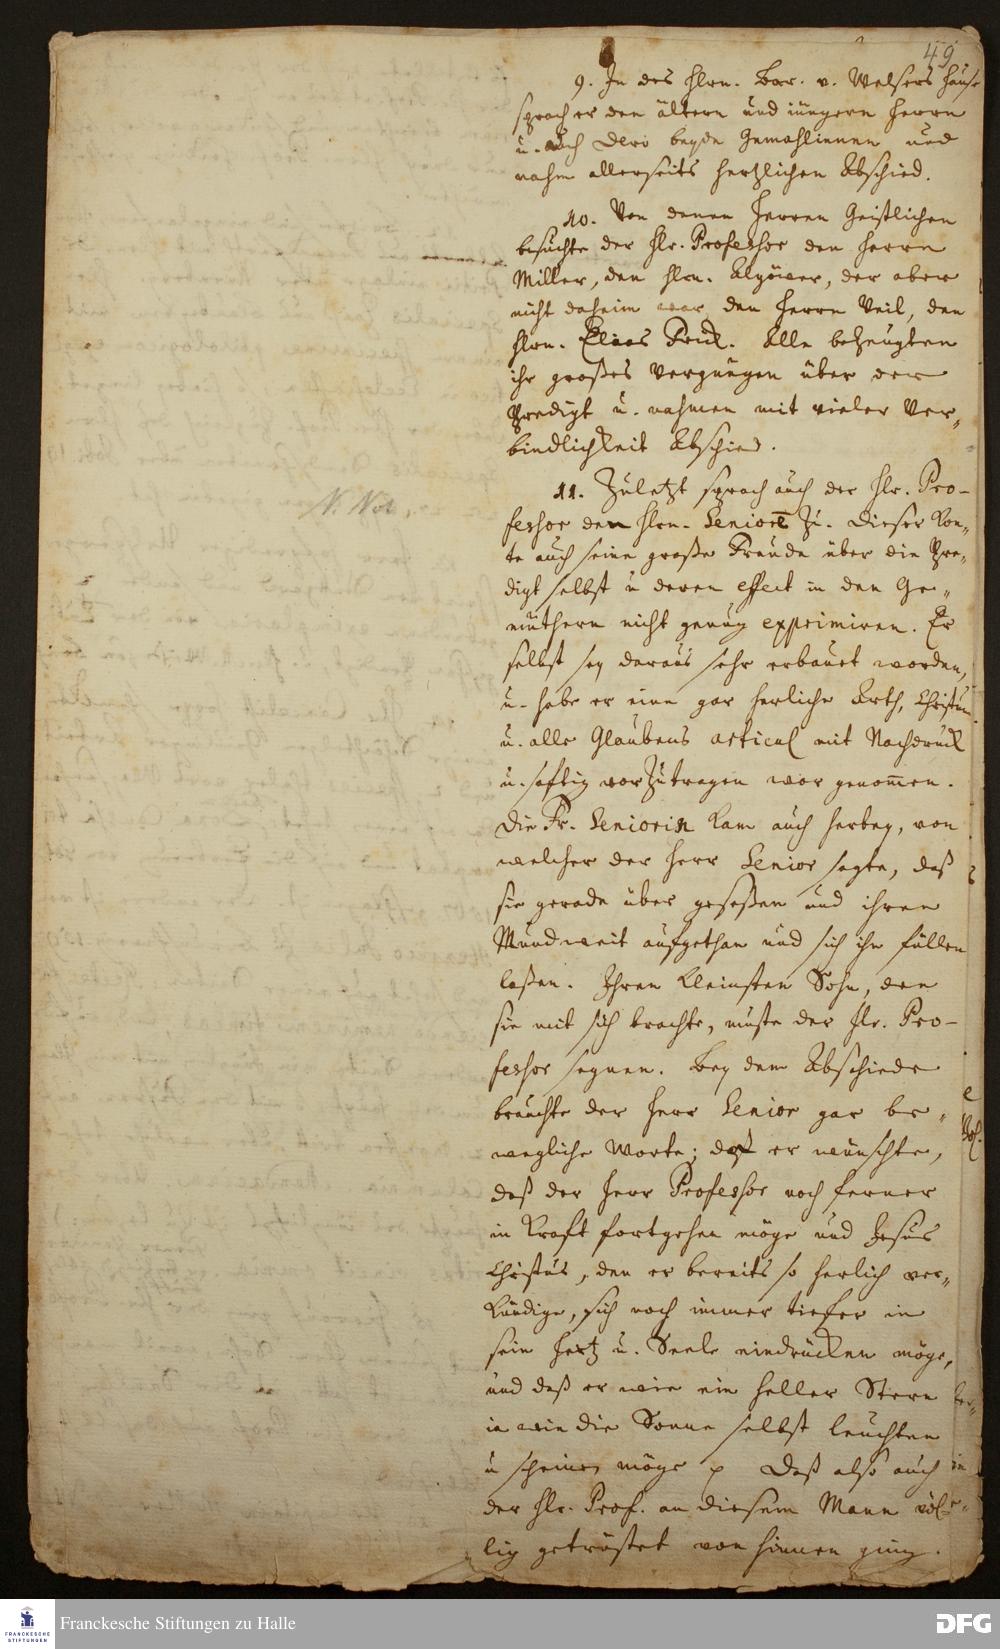 49
9. In des Hrn. Bar. v. Welsers Hause
sprach er den ältern und jüngern Herrn
u. auch dero beyde Gemahlinnen und
nahm allerseits hertzlichen Abschied.
10. Von denen Herren Geistlichen
besuchte der Hr. Professor den Herrn
Miller, den Hrn. Algöwer, der aber
nicht daheim war, den Herrn Veil, den
Hrn. Elias Frick. Alle bezeugten
ihr großes Vergnügen über der
Predigt u. nahmen mit vieler Ver-
bindlichkeit Abschied.
N. Not.
11. Zuletzt sprach auch der Hr. Pro-
fessor dem Hrn. Seniori zu. Dieser kon-
te auch seine große Freude über die Pre-
digt selbst u. deren effect in den Ge-
müthern nicht genug exprimiren. Er
selbst sey daraus sehr erbauet worden,
u. habe er eine gar herliche Arth, Christum
u. alle Glaubens articul mit Nachdruck
u. safftig vorzutragen war genommen.
Die Fr. Seniorin kam auch herbey, von
welcher der Herr Senior sagte, daß
sie gerade über geseßen und ihren
Mund weit aufgethan und sich ihn füllen
laßen. Ihren kleinsten Sohn, den
sie mit sich brachte, muste der Hr. Pro-
fessor segnen. Bey dem Abschiede
brauchte der Herr Senior gar be-
wegliche Worte; daß er wünschte,
daß der Herr Professor noch ferner
in Kraft fortgehen möge und Jesus
Christus, den er bereits so herlich ver-
kündige, sich noch immer tiefer in
sein Hertz u. Seele eindrücken möge,
und daß er wie ein heller Stern
ia wie die Sonne selbst leuchten
u. scheinen möge p Daß also auch
der Hr. Prof. an diesem Mann völ-
lig getröstet von hinnen ging.
FRANCKESCHE
STIFTUNGEN
Franckesche Stiftungen zu Halle
DFG